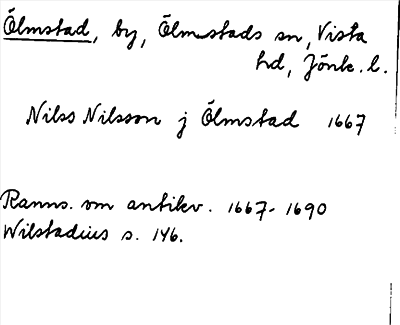 Ölmstad, by, Ölmstads sn, Vista
hd, Jönk. l.
Nils Nilsson j Ölmstad 1667
Ranns. om antikv. 1667-1690
Wilstadius s. 146.